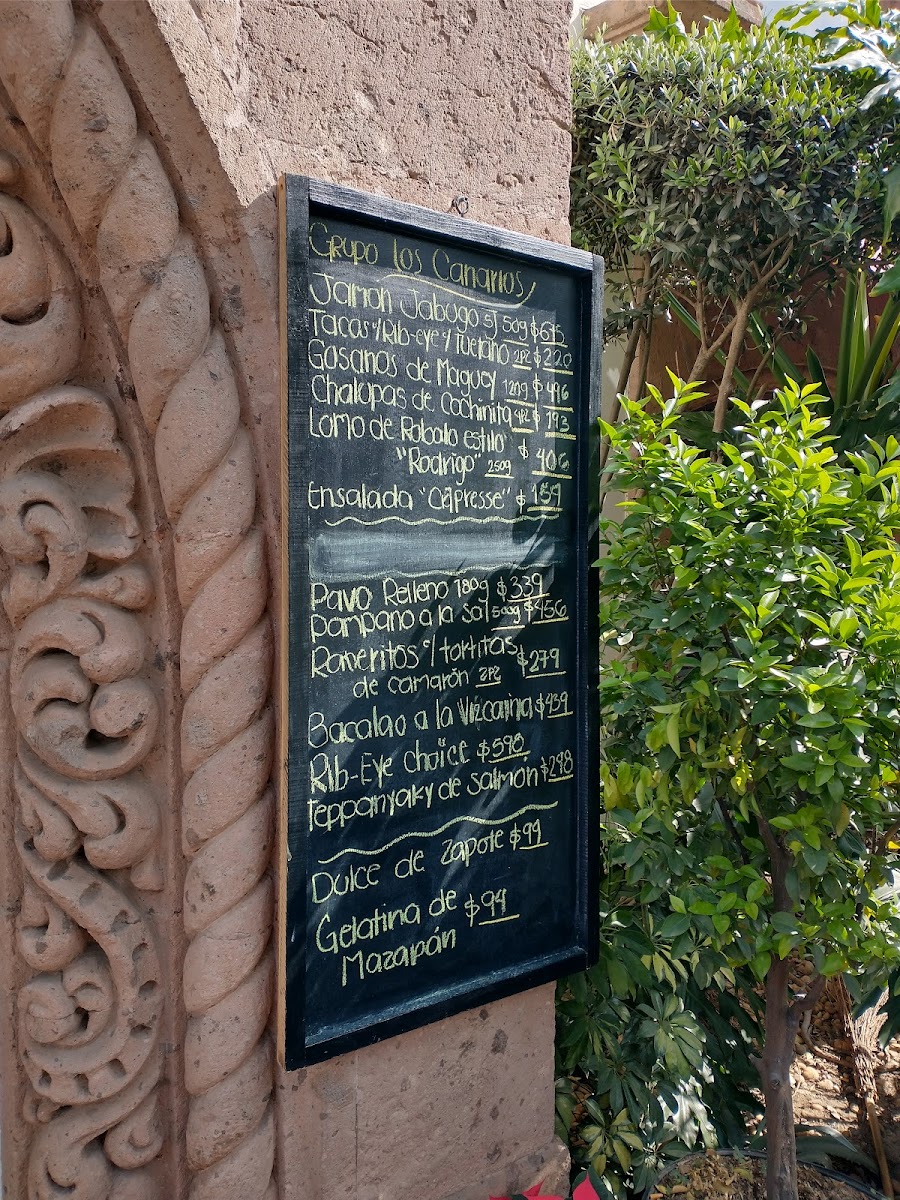 Grupo Los Canarios
Jamon Jabugo 5J 50g $695
Tacos c/Rib-eye y Tuetano 2PZ $220
Gosanos de Maguey 120g $496
Chalupas de Cochinita 4PZ $193
Lomo de Robalo estilo $
"Rodrigo" 250g 406
Ensalada "Capresse" $159
Pavo Relleno 180g $339
Pampano a la sal 500g $456
Romeritos c/tortitas $279
de camarón 2PZ
Bacalao a la Vizcaina $439
Rib-Eye choice $598
Teppanyaky de Salmón $298
Dulce de Zapote $99
Gelatina de $94
Mazapán